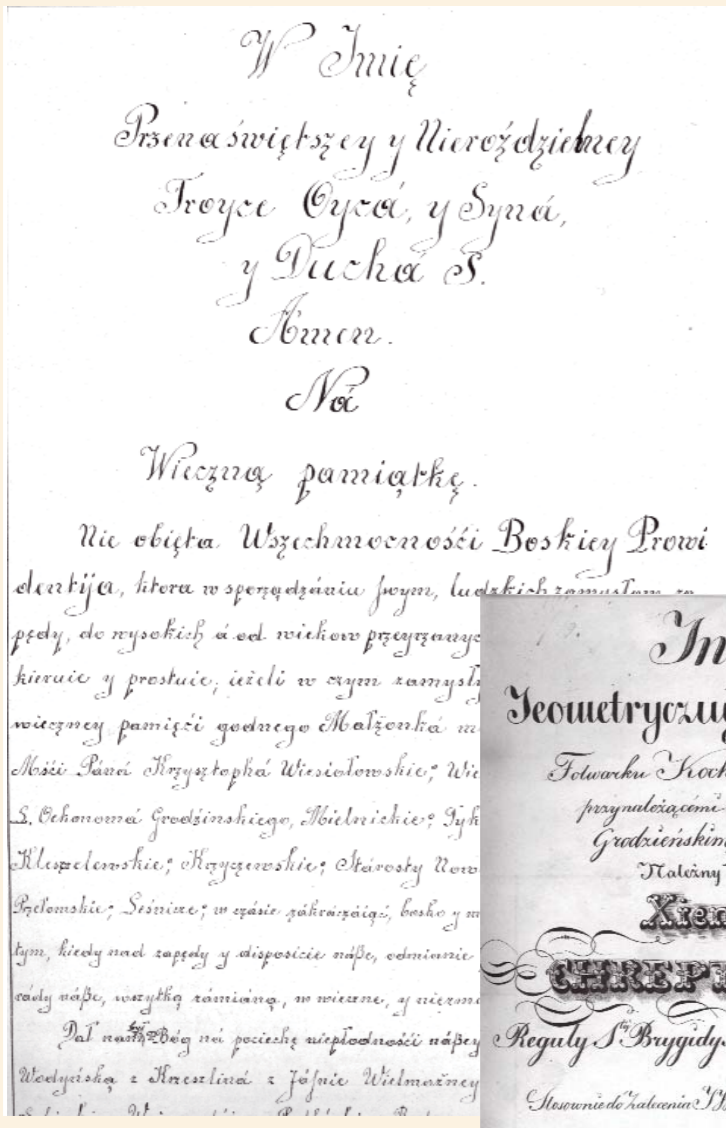 W Imię
Przenaświętszey y Nierozdzielney
Troyce Oycá, y Syná,
y Duchá S.
Amen.
Ná
Wieczną pamiątkę.
Nie obięta Wszechmocnośći Boskiey Prowi
dentija, ktora w sporządzániu swym, ludzkich zamysłom za
pędy, do wysokich á od wiekow przeyrzanyc
kieruie y prostuie; ieżeli w czym zamysły
wieczney pamięći godnego Małżonká m
Mśći Páná Krzysztophá Wiesiołowskie; Wie
L. Oekonomá Grodzinskiego, Mielnickie; Tyk
Kleszczelewskie; Krzyczewskie; Stárosty Now
Przełomskie; Leśnicze; w czásie zákraczáiąć, bosko y m
tym, kiedy nad zapędy y disposicie náße, odmianie
rády náße, wszytką zámianą, w wieczne, y niezm
Dał nam Bóg ná pociechę niepłodnośći nášey
Wodyńską z Krzeslina z Jáśnie Wielmożney
In
Jeometryczny
Folwarku Koch
przynależącemi
Grodzieńskim
Należny
Xien
CHREPT
Reguły Stéy Brygidy
Stosownie do Zalecenia